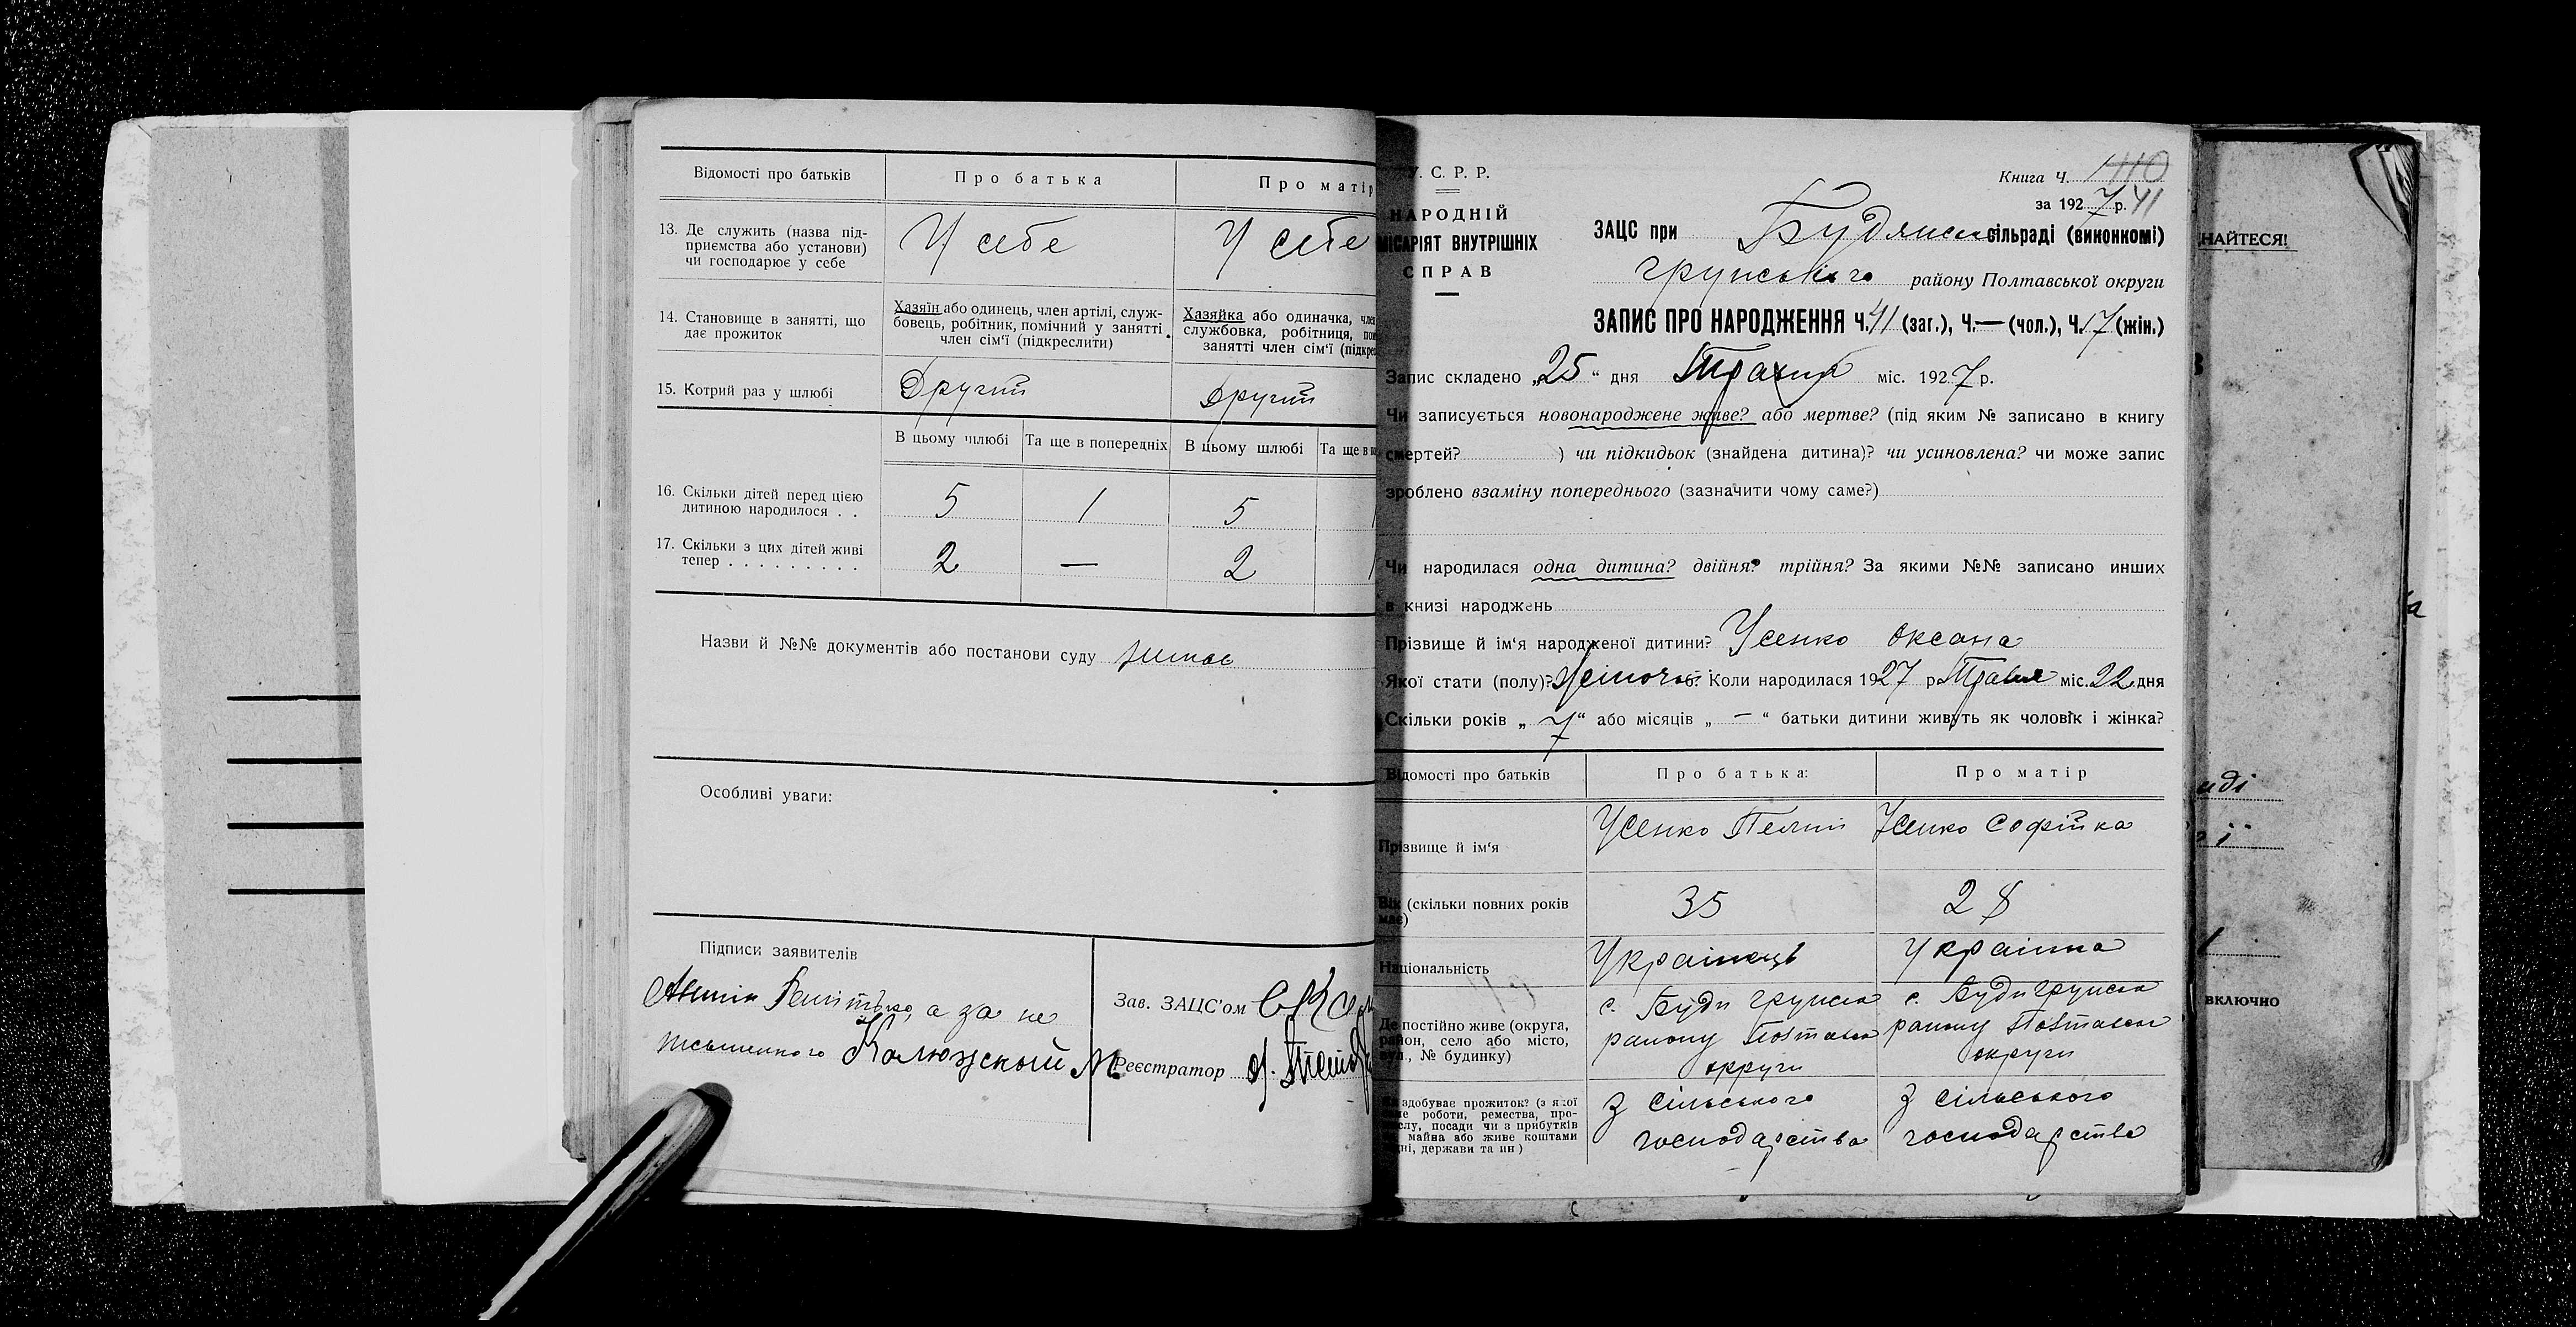 Відомості про батьків
Про батька
Про матір
13. Де служить (назва під-
приємства або установи)
чи господарює у себе
У себе
У себе
14. Становище в занятті, що
дає прожиток
Хазяїн або одинець, член артілі, служ-
бовець, робітник, помічний у занятті
член сім'ї (підкреслити)
Хазяйка або одиначка, член
службовка, робітниця, пом
занятті член сім'ї (підкре
15. Котрий раз у шлюбі
Другий
Другий
В цьому шлюбі
Та ще в попередніх
В цьому шлюбі
Та ще в
16. Скільки дітей перед цією
дитиною народилося . .
5
1
5
17. Скільки з цих дітей живі
тепер . . . . . . . . .
2
—
2
Назви й №№ документів або постанови суду
Особливі уваги:
Підписи заявителів
а за не
письменного Калюжский М.
Зав. ЗАЦС'ом
Реєстратор
У. С. Р. Р.
НАРОДНІЙ
КОМІСАРІЯТ ВНУТРІШНІХ
СПРАВ
Книга Ч. 1
за 1927 р. 41
ЗАЦС при Будянській сільраді (виконкомі)
Грунського району Полтавської округи
ЗАПИС ПРО НАРОДЖЕННЯ Ч. 41 (заг.), Ч. — (чол.), Ч. 17 (жін.)
Запис складено „25“ дня Травня міс. 1927 р.
Чи записується новонароджене живе? або мертве? (під яким № записано в книгу
смертей? ) чи підкидьок (знайдена дитина)? чи усиновлена? чи може запис
зроблено взаміну попереднього (зазначити чому саме?)
Чи народилася одна дитина? двійня? трійня? За якими №№ записано инших
в книзі народжень
Прізвище й ім'я народженої дитини? Усенко Оксана
Якої стати (полу)? Жіночої Коли народилася 1927 р. Травня міс. 22 дня
Скільки років „7“ або місяців „—“ батьки дитини живуть як чоловік і жінка?
Відомості про батьків
Про батька:
Про матір
Прізвище й ім'я
Усенко
Усенко Софійка
Вік (скільки повних років
має)
35
28
Національність
Українець
Українка
Де постійно живе (округа,
район, село або місто,
вул., № будинку)
с. Буди Грунськ
району Полтавськ
округи
с. Буди Грунськ
району Полтавськ
округи
здобуває прожиток? (з якої
роботи, ремества, про-
слу, посади чи з прибутків
майна або живе коштами
держави та ин)
з сільського
господарства
з сільського
господарства
НАЙТЕСЯ!
включно